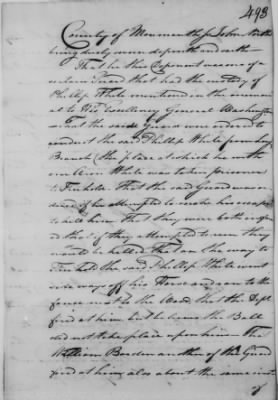 493
County of Monmouth ss John North
being duly sworn deposeth and saith
That he this Deponent was one of a
certain Guard that had the custody of
Phillip White mentioned in the
at to His Excellency General Washington
that the said Guard were ordered to
conduct the said Phillip White from long
Branch (the place at which he with
one Aron White was taken prisoner
to Freehold That the said Guard were or
dered if he attempted to make his escape
to kill him That they were both
ed that if they attempted to run they
would be killed That on the way to
Freehold the said Phillip White went
off his Horse and ran to the
fence next to the Wood that the Dept
fired at him but believes the Ball
did not take place upon him - The
William Borden another of the Guard
fired at him also about the same inst
of